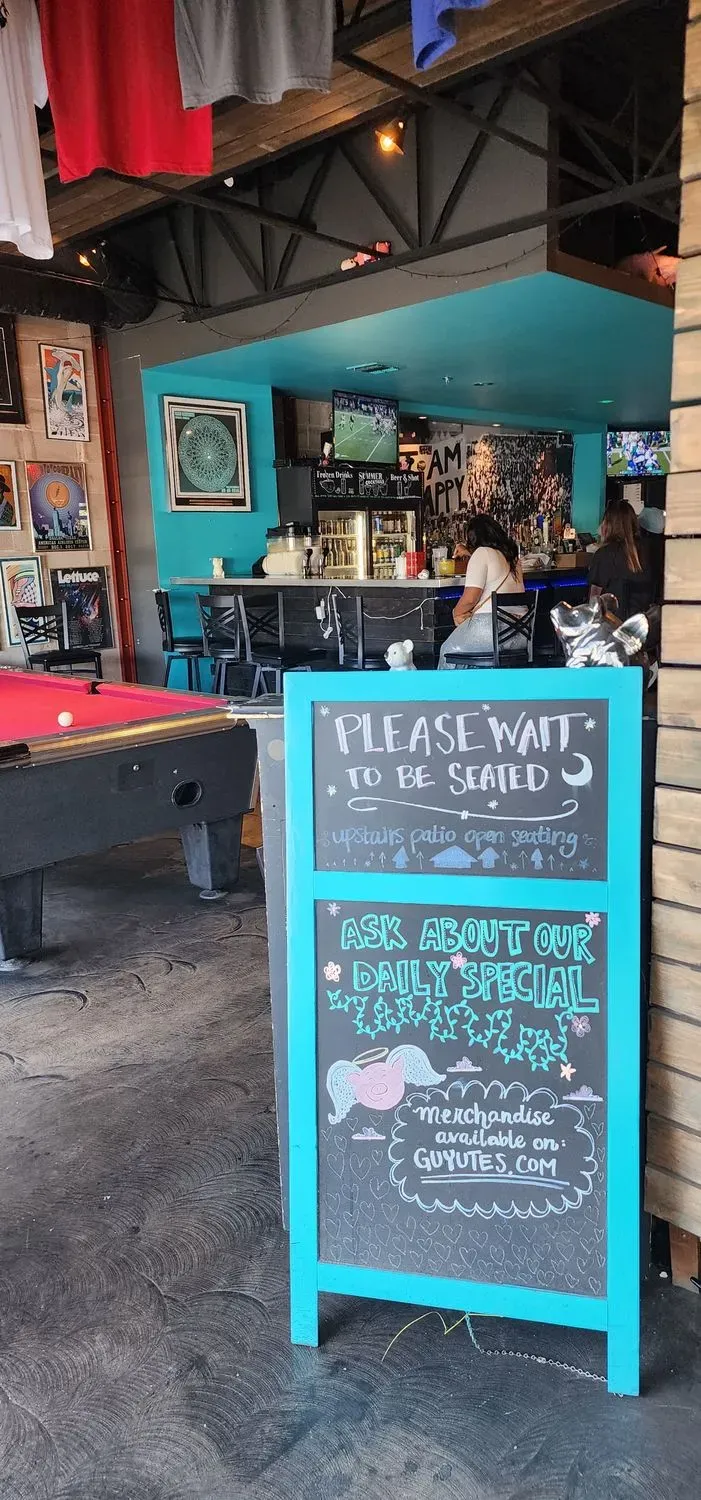 Lettuce
Frozen Drinks
SUMMER
Beer & Shot
AM
APPY
PLEASE WAIT
TO BE SEATED
upstairs patio open seating
ASK ABOUT OUR
DAILY SPECIAL
merchandise
available on:
GUYUTES.COM